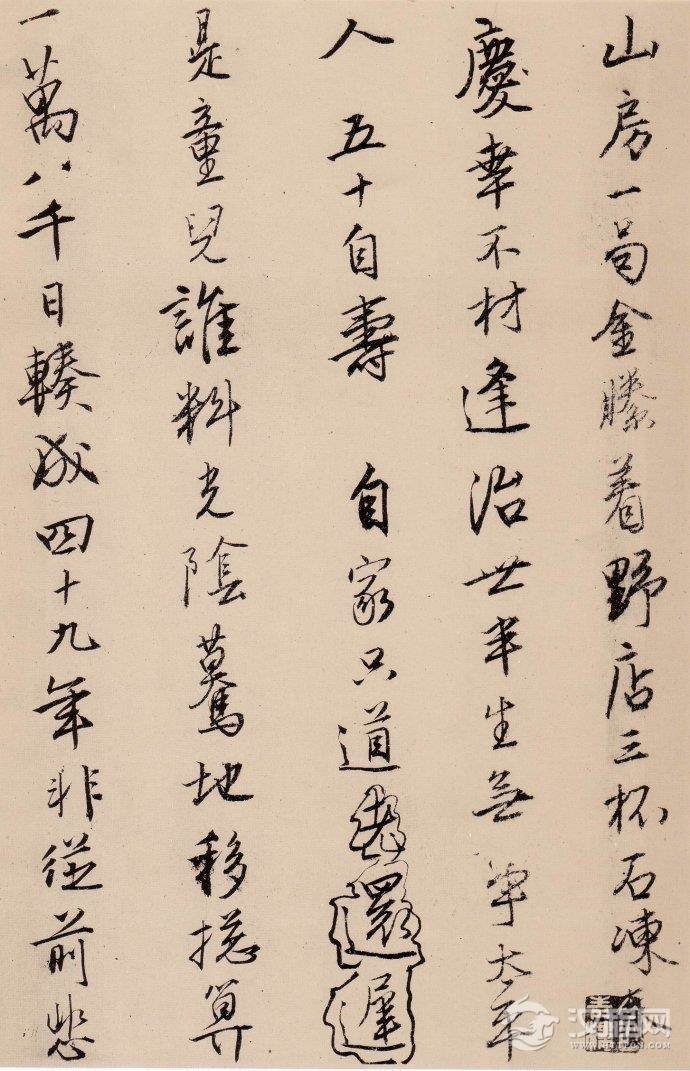 山房一局金縢着野店三杯石凍
慶幸不材逢治世半生無事太平
人 五十自壽 自家只道老還遲
是童兒誰料光陰驀地移揔算
一萬八千日輳成四十九年非從前悲
汉程网
HTTPCN.COM